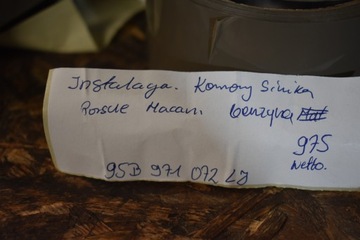 Instalacja. Komory Silnika
Porsche Macan. benzyna
975
Netto.
95B 971 072 LJ